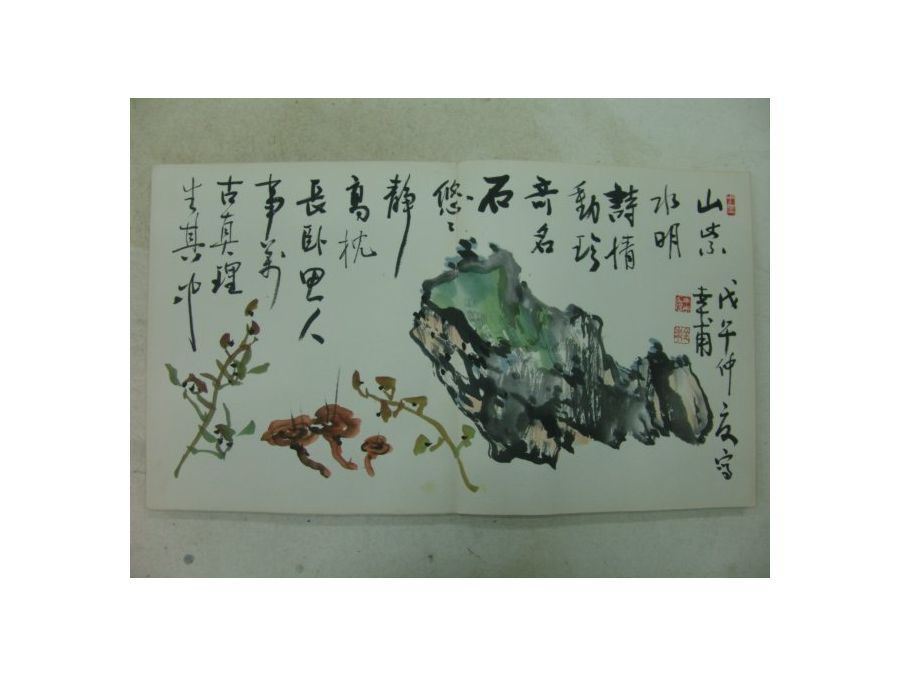 山紫
水明
詩情
動珍
奇名
石
悠〻
静
高枕
長卧思人
事萬
古真理
生其中
戊午仲夏写
幸甫